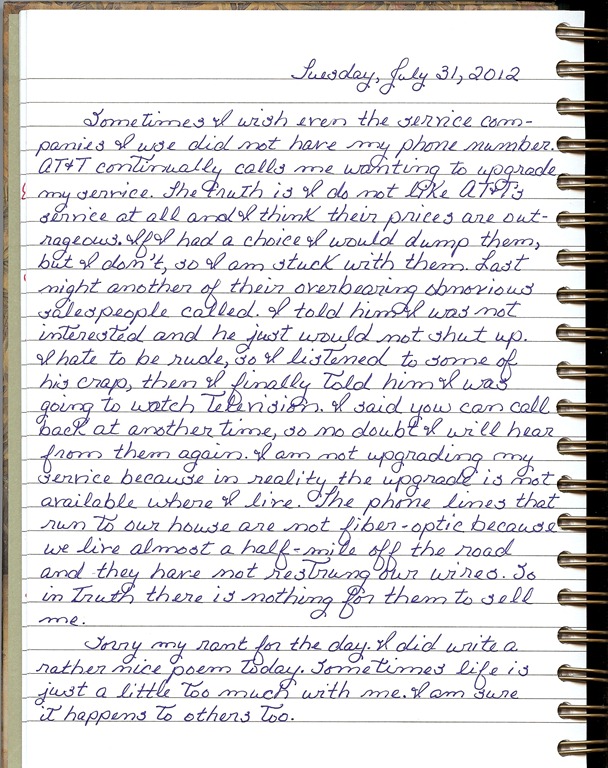 Tuesday, July 31, 2012
Sometimes I wish even the service com-
panies I use did not have my phone number.
AT&T continually calls me wanting to upgrade
my service. The truth is I do not like AT&T's
service at all and I think their prices are out-
rageous. If I had a choice I would dump them,
but I don't, so I am stuck with them. Last
night another of their overbearing obnovious
salespeople called. I told him I was not
interested and he just would not shut up.
I hate to be rude, so I listened to some of
his crap, then I finally told him I was
going to watch Television. I said you can call
back at another time, so no doubt I will hear
from them again. I am not upgrading my
service because in reality the upgrade is not
available where I live. The phone lines that
run to our house are not fiber-optic because
we live almost a half-mile off the road
and they have not restrung our wires. So
in Truth there is nothing for them to sell
me.
Sorry my rant for the day. I did write a
rather nice poem today. Sometimes life is
just a little too much with me. I am sure
it happens to others too.